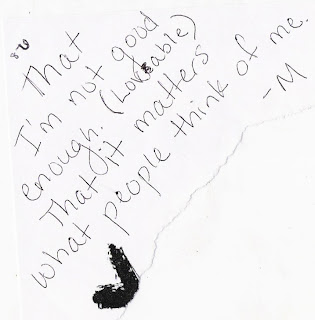 82
That
I'm not good
enough. (Loveable)
That it matters
what people think of me.
-M